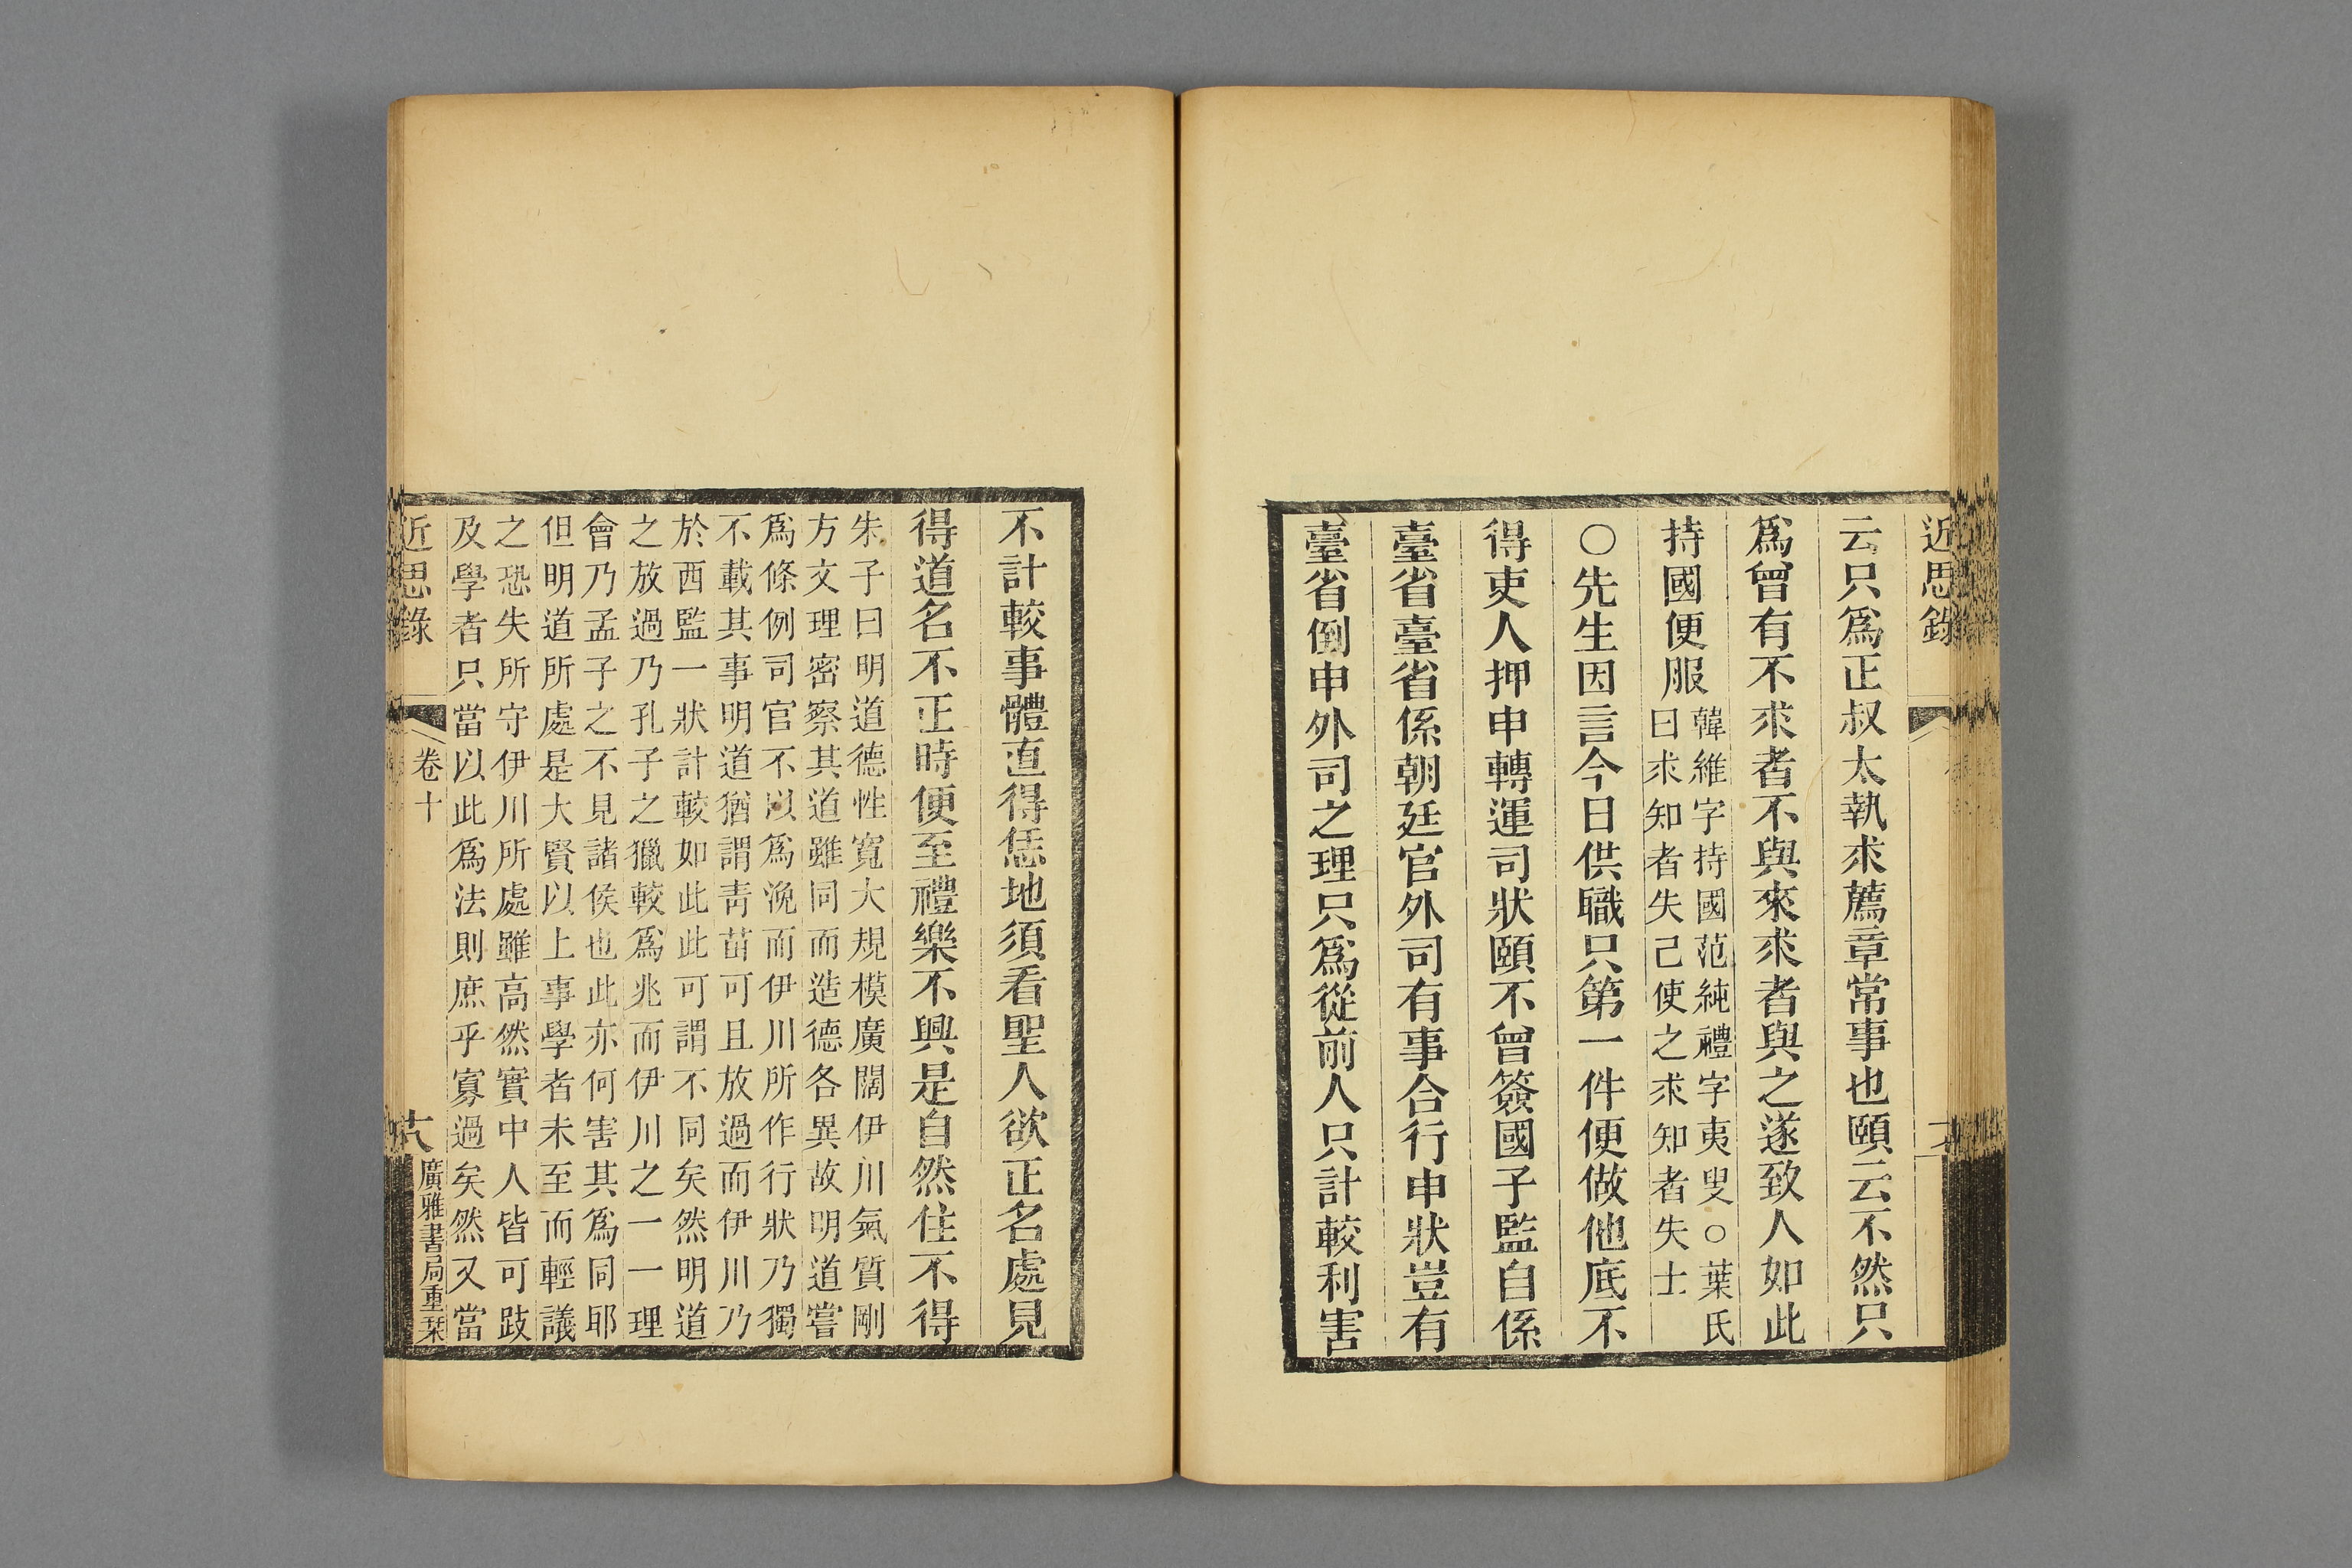 近思錄
云只爲正叔太執求薦章常事也頤云不然只
爲曾有不求者不與來求者與之遂致人如此
持國便服
韓維字持國范純禮字夷叟○葉氏
曰求知者失己使之求知者失士
○先生因言今日供職只第一件便做他底不
得吏人押申轉運司狀頤不曾簽國子監自係
臺省臺省係朝廷官外司有事合行申狀豈有
臺省倒申外司之理只爲從前人只計較利害
不計較事體直得恁地須看聖人欲正名處見
得道名不正時便至禮樂不興是自然住不得
朱子曰明道德性寬大規模廣闊伊川氣質剛
方文理密察其道雖同而造德各異故明道嘗
爲條例司官不以爲浼而伊川所作行狀乃獨
不載其事明道猶謂靑苗可且放過而伊川乃
於西監一狀計較如此此可謂不同矣然明道
之放過乃孔子之獵較爲兆而伊川之一一理
會乃孟子之不見諸侯也此亦何害其爲同耶
但明道所處是大賢以上事學者未至而輕議
之恐失所守伊川所處雖高然實中人皆可跂
及學者只當以此爲法則庶乎寡過矣然又當
近思錄 卷十 十八 廣雅書局重栞